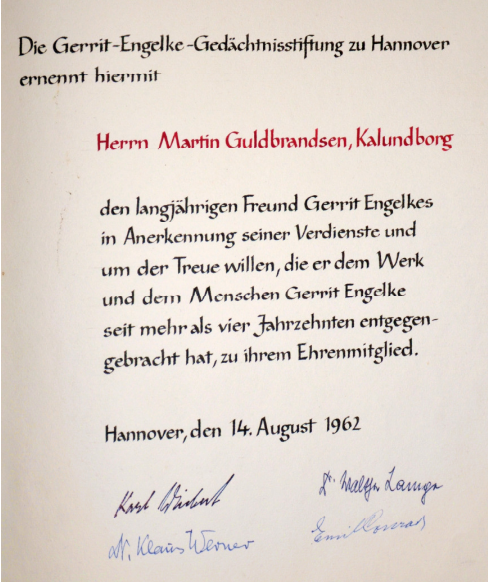 Die Gerrit-Engelke-Gedächtnisstiftung zu Hannover
ernennt hiermit
Herrn Martin Guldbrandsen, Kalundborg
den langjährigen Freund Gerrit Engelkes
in Anerkennung seiner Verdienste und
um der Treue willen, die er dem Werk
und dem Menschen Gerrit Engelke
seit mehr als vier Jahrzehnten entgegen-
gebracht hat, zu ihrem Ehrenmitglied.
Hannover, den 14. August 1962
Karl
Dr. Walther
Dr. Klaus Werner
Emil Conrad